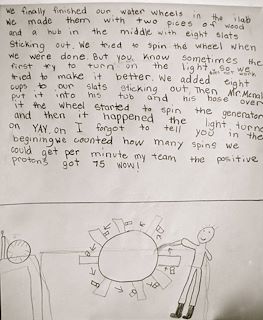 We finally finished our water wheels in the ilab
We made them with two pices of wood
and a hub in the middle with eight slats
Sticking out. We tried to spin the wheel when
we were done. But you know sometimes the
first try to turn on the light does not work so we
tried to make it better. We added eight
cups to our slats sticking out. Then Mr.
put it into his tub and his hose over
it the wheel started to spin the generator
and then it happened the light turne
on YAY. Oh I forgot to tell you in the
begining we counted how many spins we
could get per minute my team the positive
protons got 75 wow!